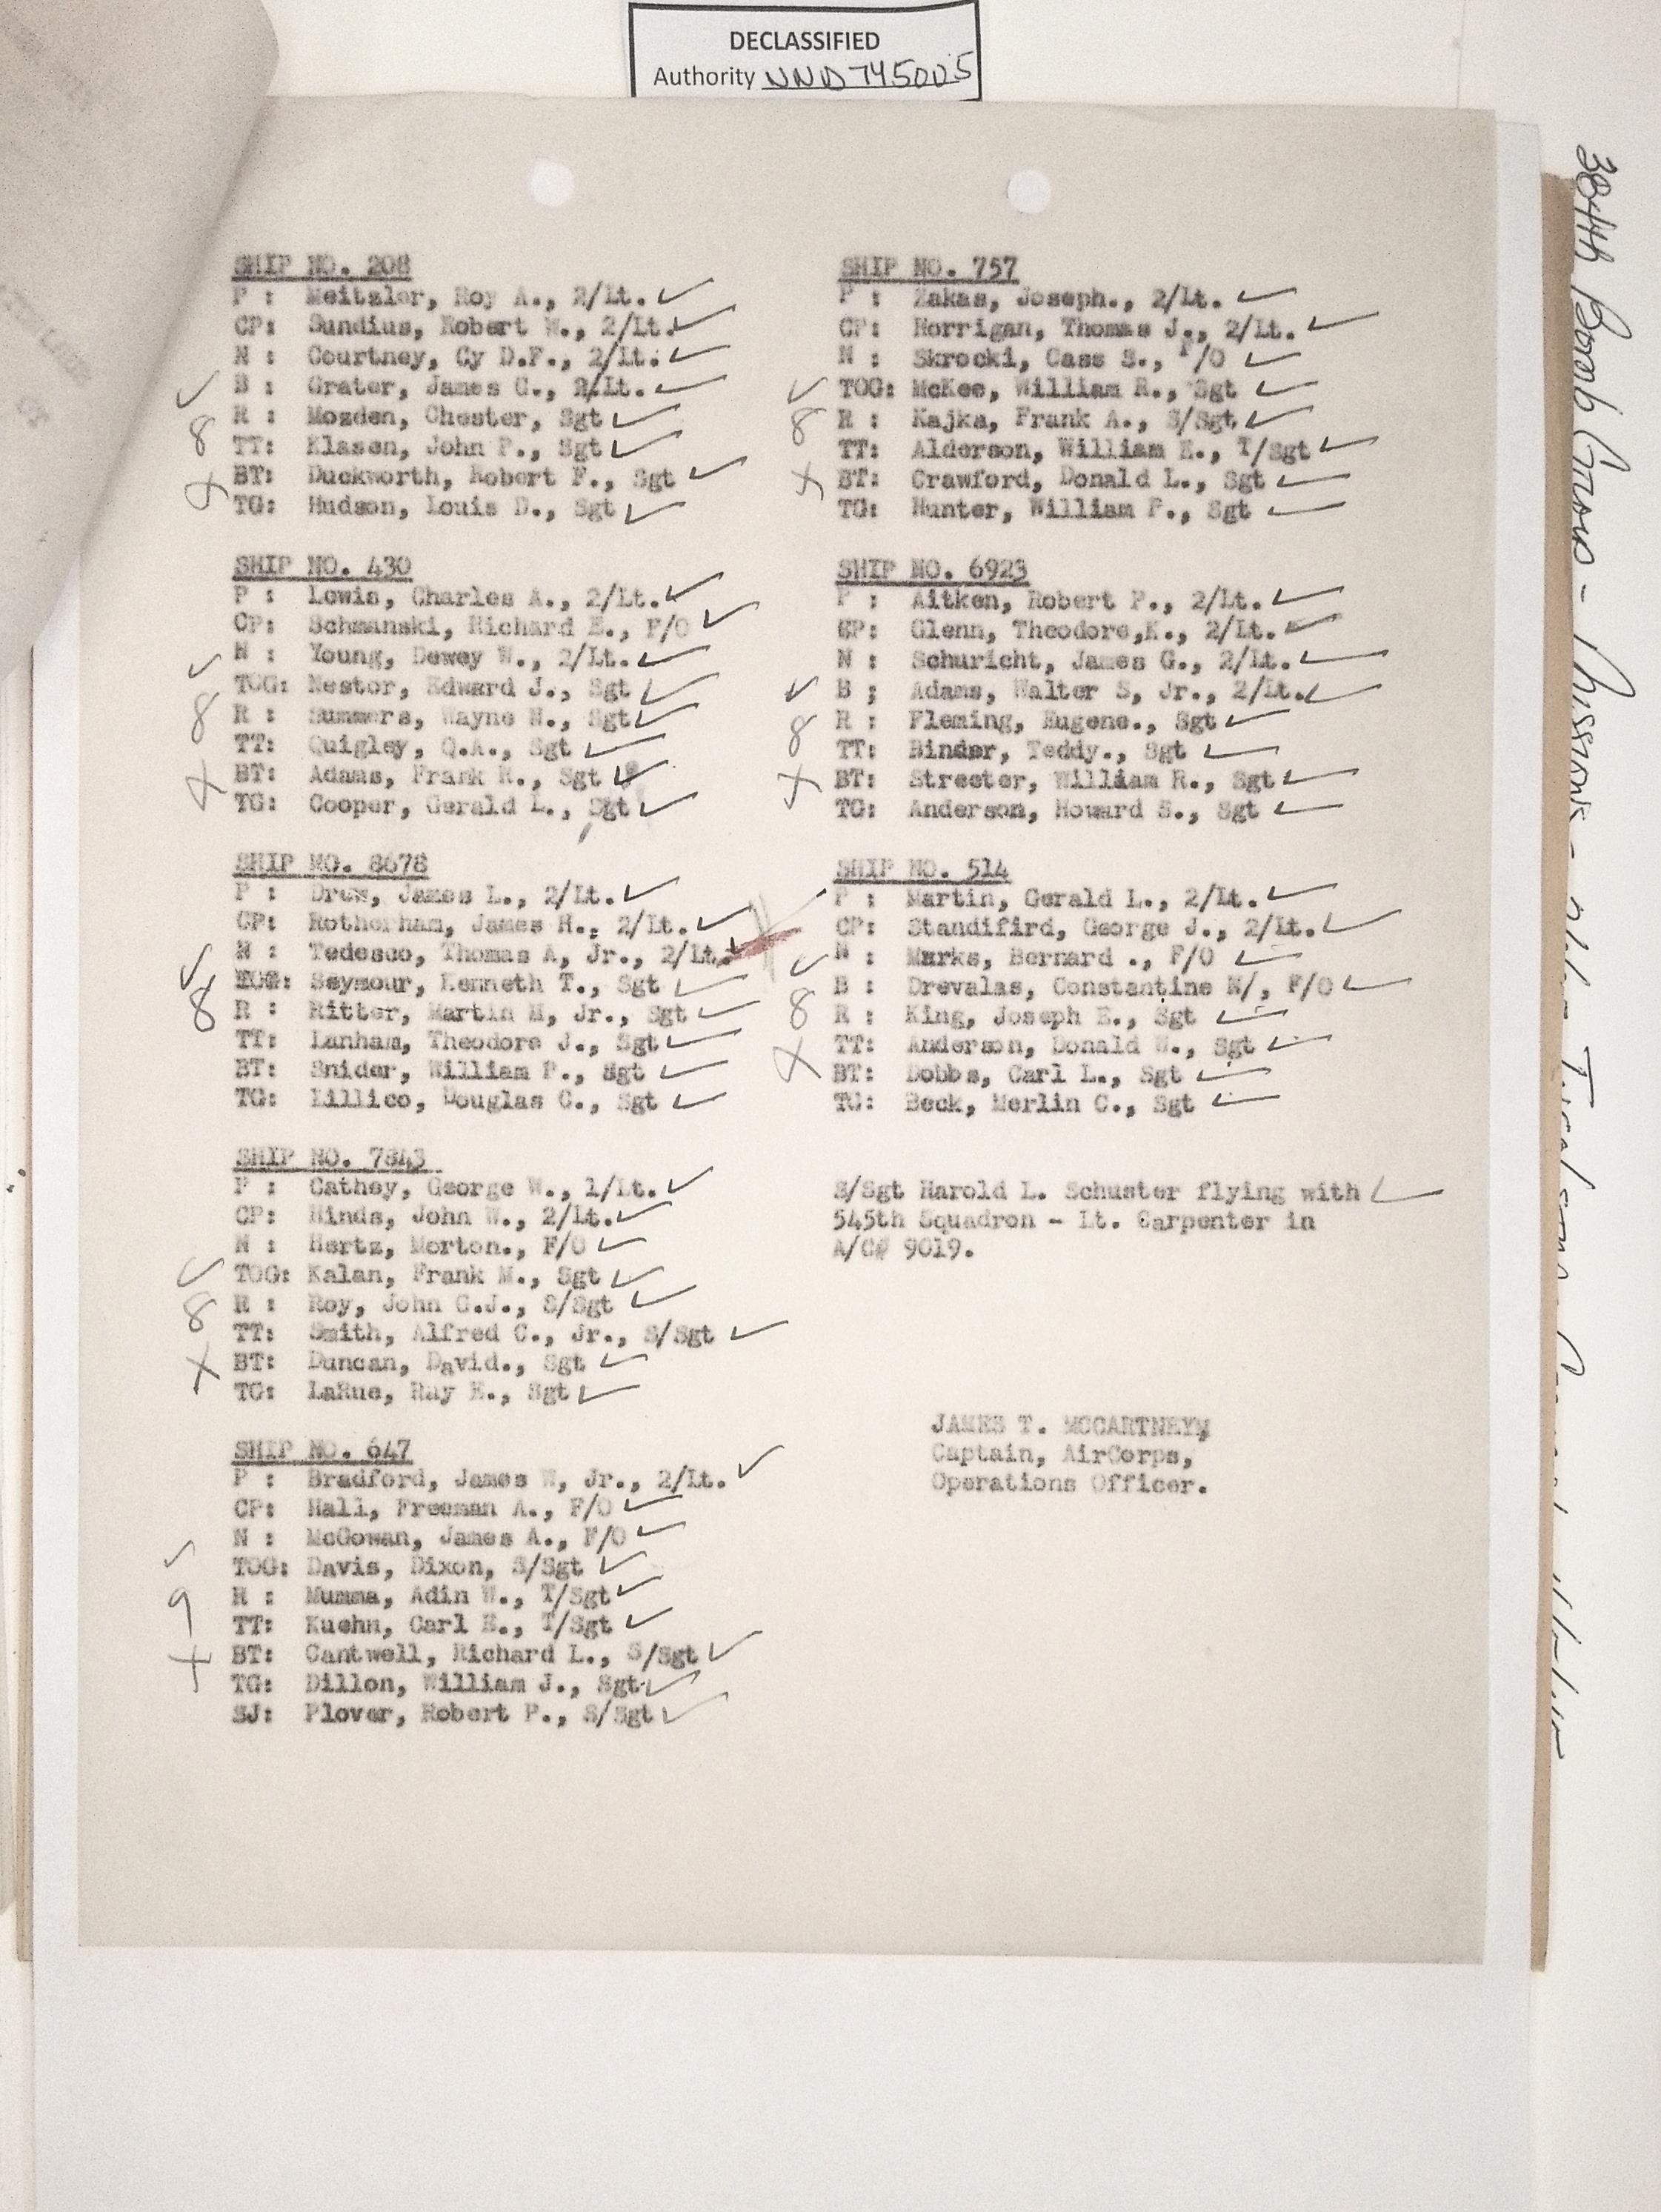 DECLASSIFIED
Authority NND 745005
SHIP NO. 208
P : Meitzler, Roy A., 2/Lt.
CP: Sundius, Robert W., 2/Lt.
N : Courtney, Cy D.F., 2/Lt.
B : Grater, James C., 2/Lt.
R : Mozden, Chester, Sgt
8
TT: Klasen, John P., Sgt
BT: Duckworth, Robert F., Sgt
TG: Hudson, Louis D., Sgt
SHIP NO. 430
P : Lewis, Charles A., 2/Lt.
CP: Schmanski, Richard E., F/O
N : Young, Dewey W., 2/Lt.
TOG: Nestor, Edward J., Sgt
8
R : Summers, Wayne N., Sgt
TT: Quigley, Q.A., Sgt
BT: Adams, Frank R., Sgt
TG: Cooper, Gerald L., Sgt
SHIP NO. 8678
P : Drew, James L., 2/Lt.
CP: Rotherham, James H., 2/Lt.
N : Tedesco, Thomas A, Jr., 2/Lt.
TOG: Seymour, Kenneth T., Sgt
8
R : Ritter, Martin M, Jr., Sgt
TT: Lanham, Theodore J., Sgt
BT: Snider, William P., Sgt
TG: Lillico, Douglas C., Sgt
SHIP NO. 7843
P : Cathey, George W., 1/Lt.
CP: Hinds, John W., 2/Lt.
N : Hertz, Morton., F/O
TOG: Kalan, Frank M., Sgt
8
R : Roy, John C.J., S/Sgt
TT: Smith, Alfred C., Jr., S/Sgt
BT: Duncan, David., Sgt
TG: LaRue, Ray E., Sgt
SHIP NO. 647
P : Bradford, James W, Jr., 2/Lt.
CP: Hall, Freeman A., F/O
N : McGowan, James A., F/O
TOG: Davis, Dixon, S/Sgt
9
R : Mumma, Adin W., T/Sgt
TT: Kuehn, Carl E., T/Sgt
BT: Cantwell, Richard L., S/Sgt
TG: Dillon, William J., Sgt
SJ: Plover, Robert P., S/Sgt
SHIP NO. 757
P : Zakas, Joseph., 2/Lt.
CP: Horrigan, Thomas J., 2/Lt.
N : Skrocki, Cass S., F/O
TOG: McKee, William R., Sgt
8
R : Kajka, Frank A., S/Sgt
TT: Alderson, William E., T/Sgt
BT: Crawford, Donald L., Sgt
TG: Hunter, William F., Sgt
SHIP NO. 6923
P : Aitken, Robert P., 2/Lt.
CP: Glenn, Theodore,K., 2/Lt.
N : Schuricht, James G., 2/Lt.
B ; Adams, Walter S, Jr., 2/Lt.
8
R : Fleming, Eugene., Sgt
TT: Binder, Teddy., Sgt
BT: Streeter, William R., Sgt
TG: Anderson, Howard S., Sgt
SHIP NO. 514
P : Martin, Gerald L., 2/Lt.
CP: Standifird, George J., 2/Lt.
N : Marks, Bernard ., F/O
B : Drevalas, Constantine N/, F/O
8
R : King, Joseph E., Sgt
TT: Anderson, Donald W., Sgt
BT: Dobbs, Carl L., Sgt
TG: Beck, Merlin C., Sgt
S/Sgt Harold L. Schuster flying with
545th Squadron - Lt. Carpenter in
A/C# 9019.
JAMES T. MCCARTNEY,
Captain, AirCorps,
Operations Officer.
384th Bomb Group - Missions -